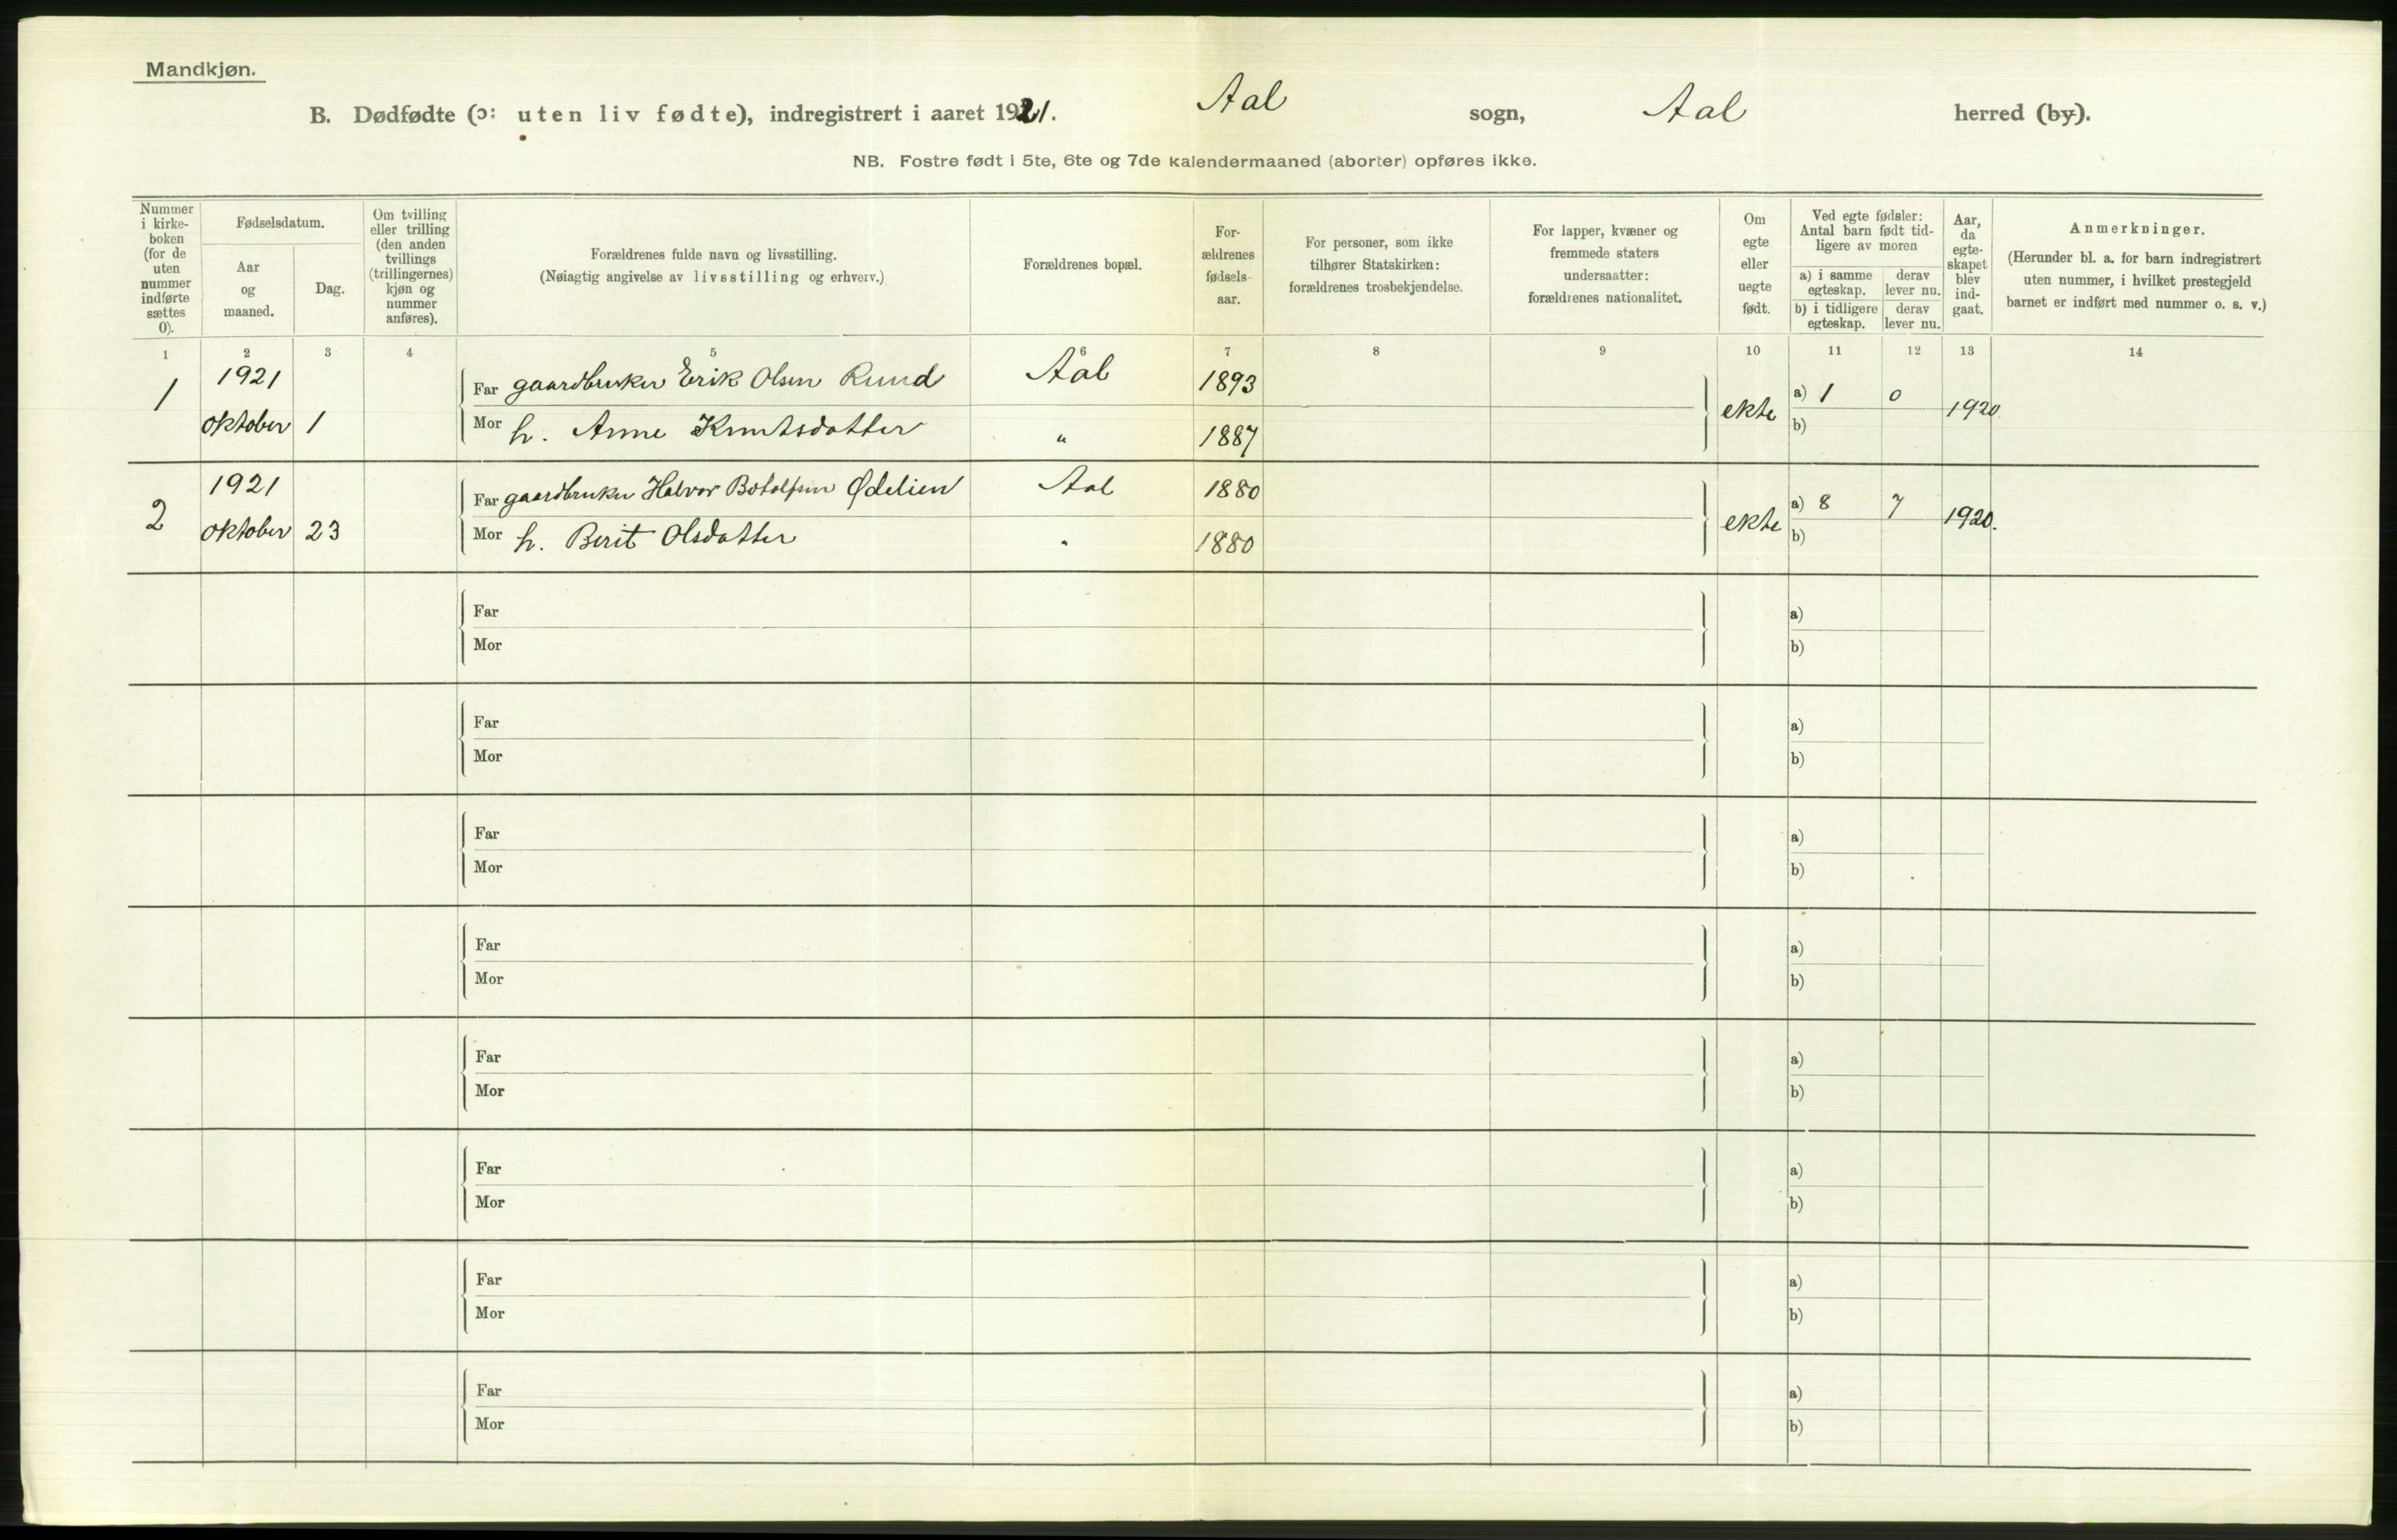 Mandkjøn.
B. Dødfødte (ɔ: uten liv fødte), indregistrert i aaret 1921. Aal sogn, Aal herred (by).
NB. Fostre født i 5te, 6te og 7de kalendermaaned (aborter) opføres ikke.
Nummer
i kirke-
boken
(for de
uten
nummer
indførte
sættes
0).
Fødselsdatum.
Aar
og
maaned.
Dag.
Om tvilling
eller trilling
(den anden
tvillings
(trillingernes)
kjøn og
nummer
anføres).
Forældrenes fulde navn og livsstilling.
(Nøiagtig angivelse av livsstilling og erhverv.)
Forældrenes bopæl.
For-
ældrenes
fødsels-
aar.
For personer, som ikke
tilhører Statskirken:
forældrenes trosbekjendelse.
For lapper, kvæner og
fremmede staters
undersaatter:
forældrenes nationalitet.
Om
egte
eller
uegte
født.
Ved egte fødsler:
Antal barn født tid-
ligere av moren
a) i samme
egteskap.
derav
lever nu.
b) i tidligere
egteskap.
derav
lever nu.
Aar,
da
egte-
skapet
blev
ind-
gaat.
Anmerkninger.
(Herunder bl. a. for barn indregistrert
uten nummer, i hvilket prestegjeld
barnet er indført med nummer o. s. v.)
1 2 3 4 5 6 7 8 9 10 11 12 13 14
1 1921 oktober 1
Far gaardbruker Erik Olsen Ruud Aal 1893
Mor h. Anne Knutsdatter " 1887
ekte a) 1 0 1920
b)
2 1921 oktober 23
Far gaardbruker Halvor Botolfsen Ødelien Aal 1880
Mor h. Berit Olsdatter " 1880
ekte a) 8 7 1920.
b)
Far a)
Mor b)
Far a)
Mor b)
Far a)
Mor b)
Far a)
Mor b)
Far a)
Mor b)
Far a)
Mor b)
Far a)
Mor b)
Far a)
Mor b)